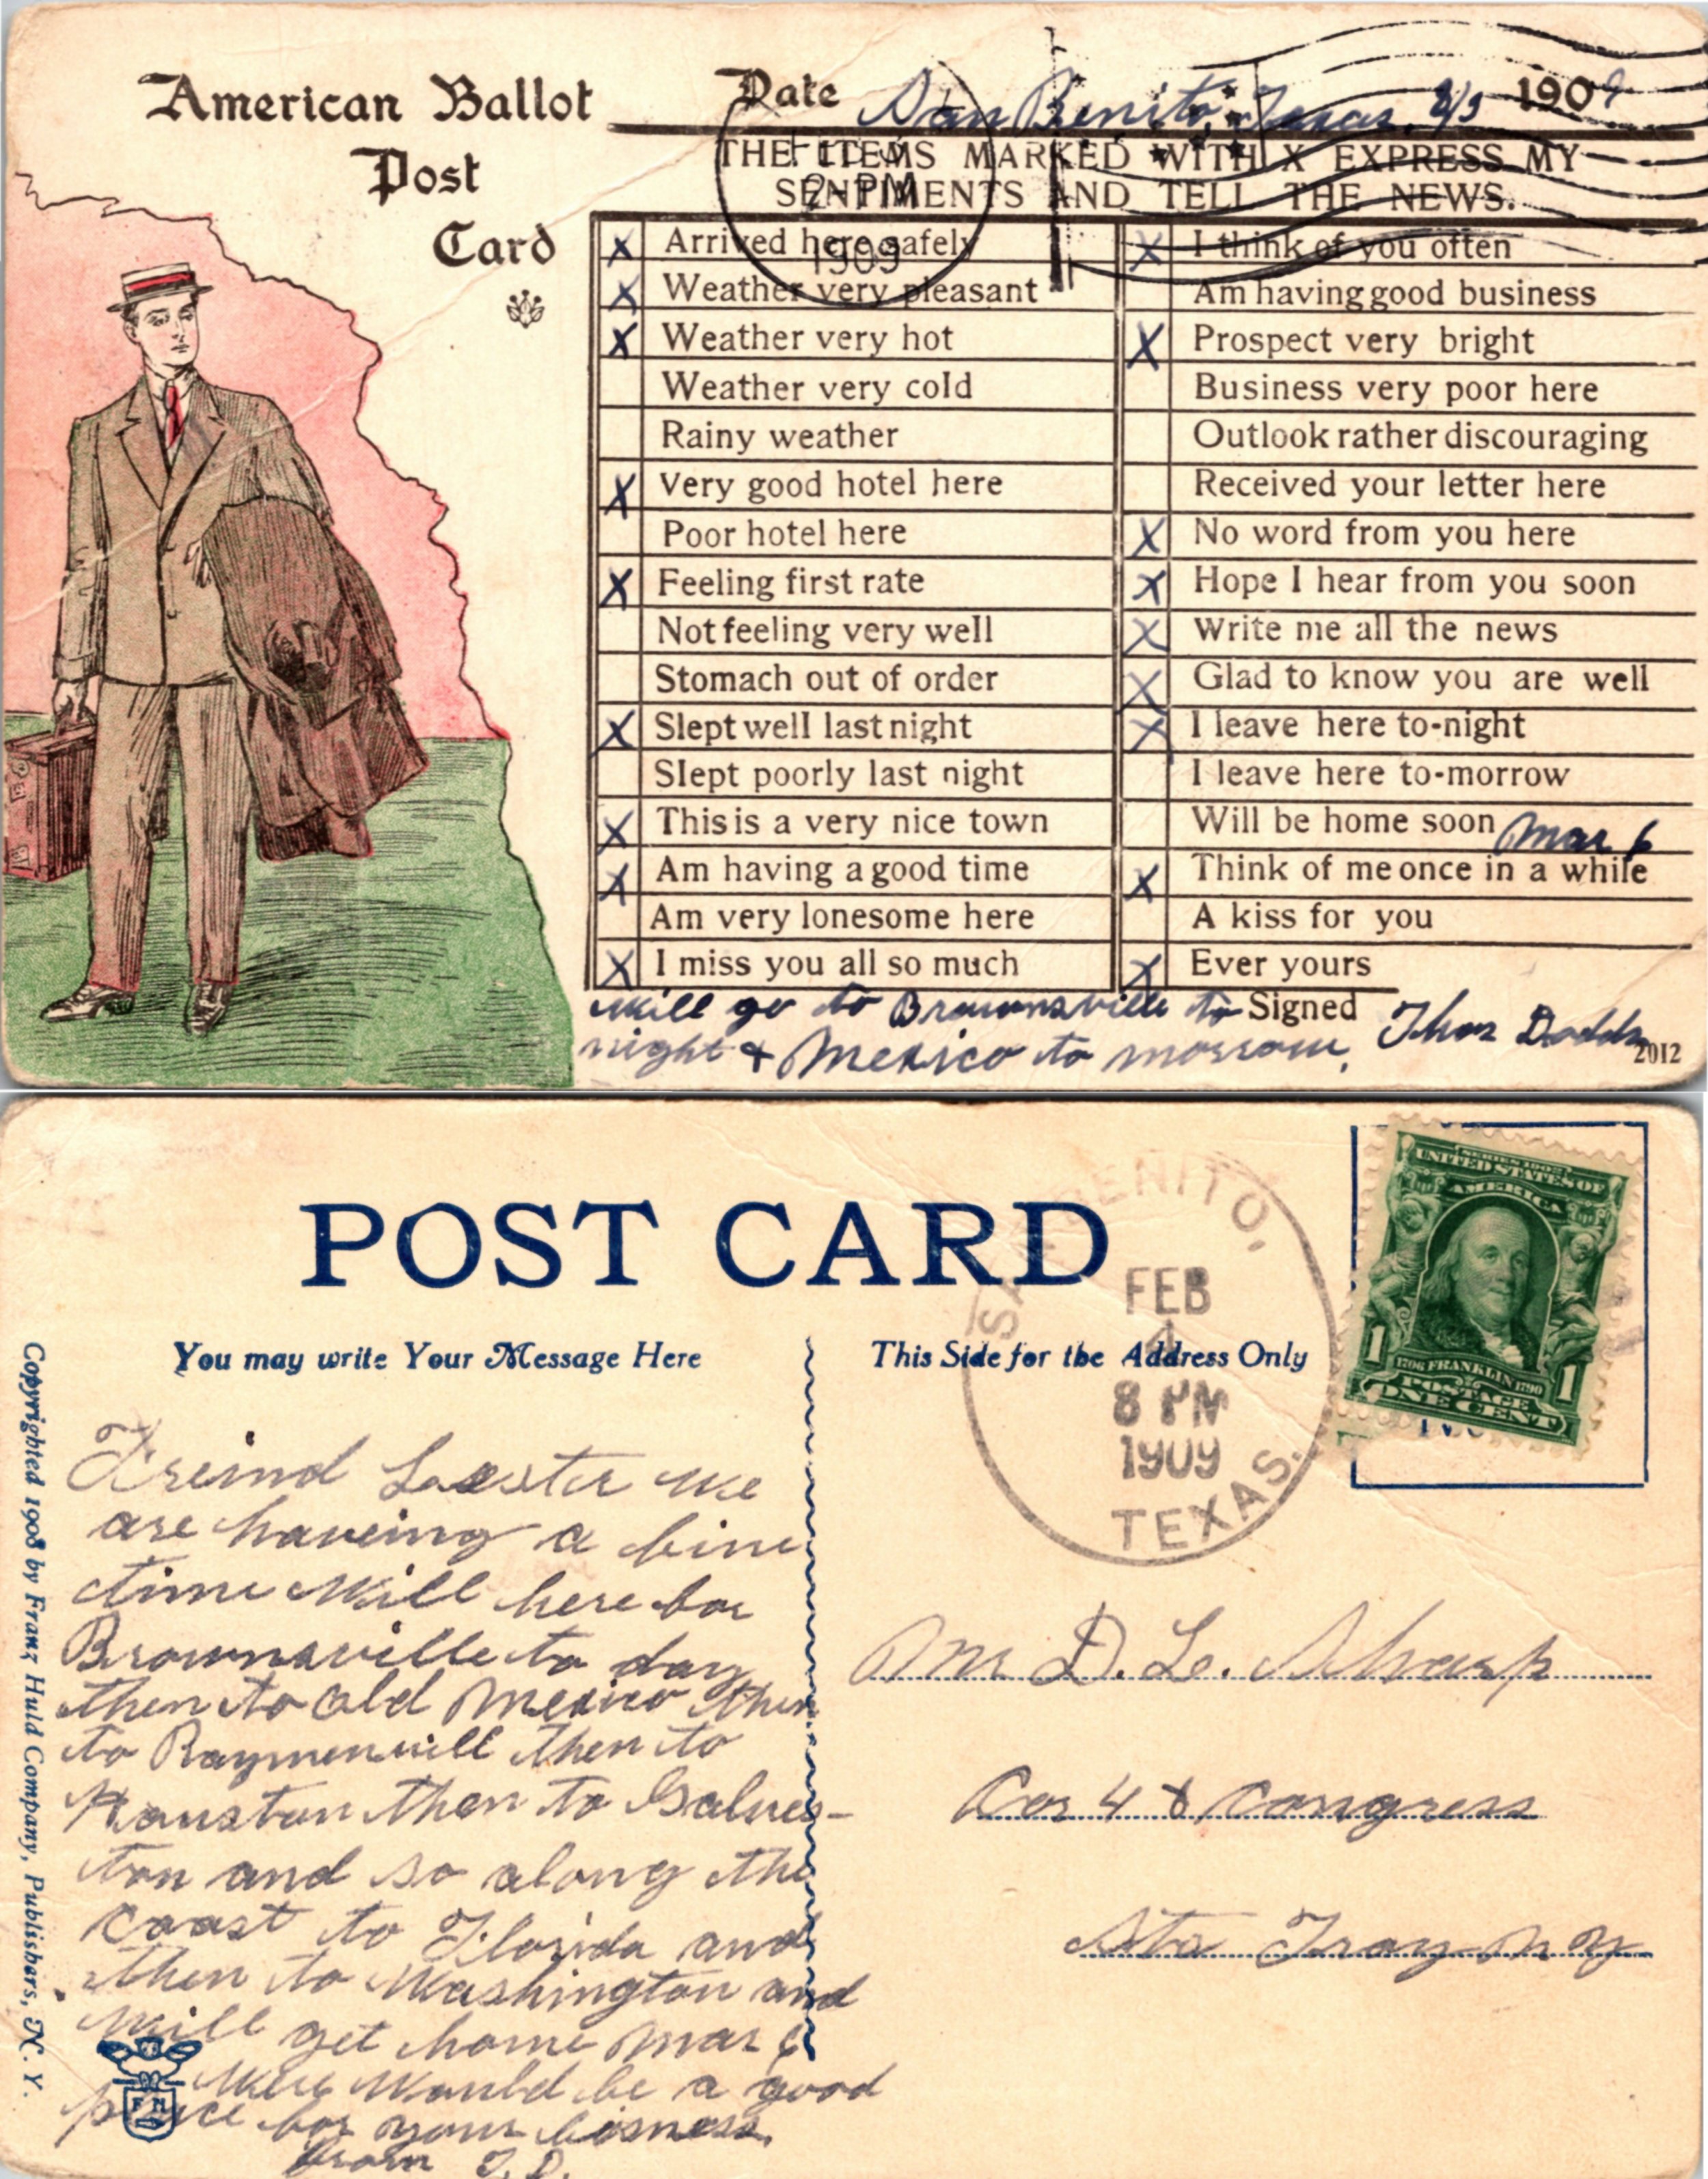 American Ballot
Post
Card
Date San Benito, Texas, 2/3 1909
FEB 3
2-PM
1909
THE ITEMS MARKED WITH X EXPRESS MY
SENTIMENTS AND TELL THE NEWS.
X Arrived here safely
X Weather very pleasant
X Weather very hot
Weather very cold
Rainy weather
X Very good hotel here
Poor hotel here
X Feeling first rate
Not feeling very well
Stomach out of order
X Slept well last night
Slept poorly last night
X This is a very nice town
X Am having a good time
Am very lonesome here
X I miss you all so much
X I think of you often
Am having good business
X Prospect very bright
Business very poor here
Outlook rather discouraging
Received your letter here
X No word from you here
X Hope I hear from you soon
X Write me all the news
X Glad to know you are well
X I leave here to-night
I leave here to-morrow
Will be home soon Mar 6
X Think of me once in a while
A kiss for you
X Ever yours
Will go to Brownsville to
night & Mexico to morrow.
Signed Thos Dodds
2012
POST CARD
SAN BENITO,
FEB
4
8 PM
1909
TEXAS.
SERIES 1902
UNITED STATES OF
AMERICA
1706 FRANKLIN 1790
1 1
POSTAGE
ONE CENT
You may write Your Message Here
This Side for the Address Only
Copyrighted 1908 by Franz Huld Company, Publishers, N. Y.
Freind Leester We
are haveing a fine
time Will here for
Brownsville to day
then to old Mexico then
to Raymenvill then to
Houston then to Galves-
ton and so along the
Coast to Florida and
then to Washington and
Will get home Mar 6
Here Would be a good
place for your bisness.
from T. D.
F H
Mr D. L. Sharp
Cor 4 & Congress
Sts Troy N Y